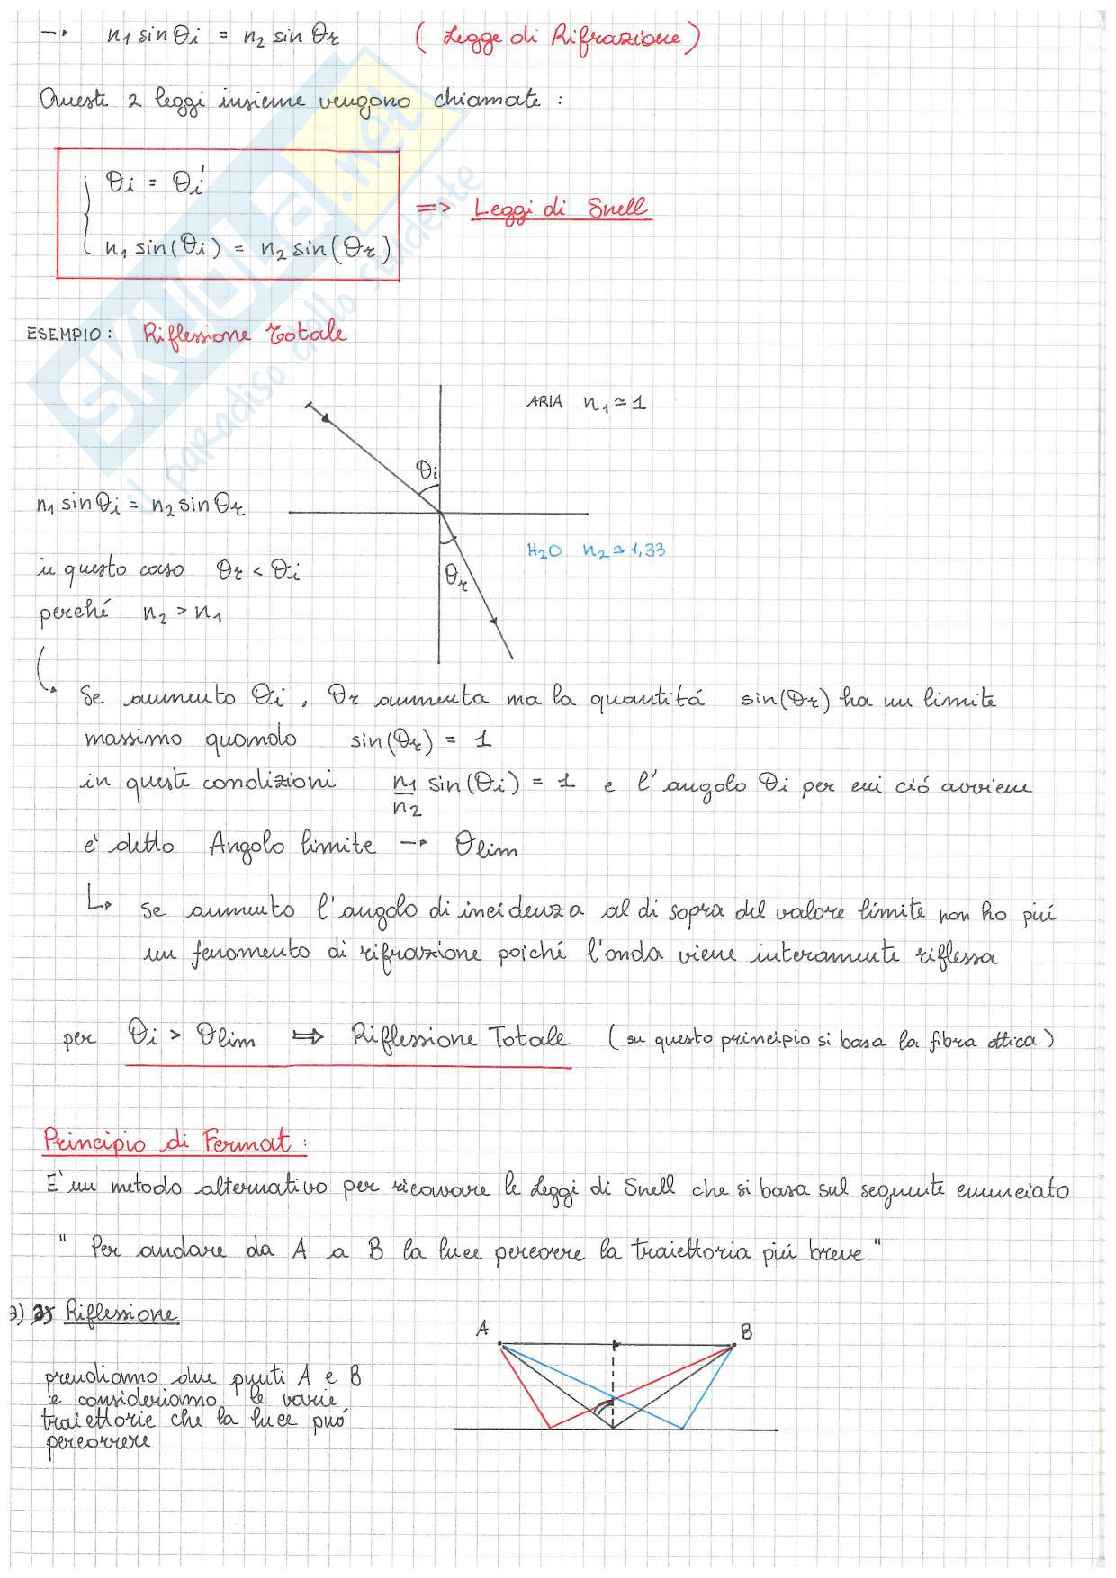 → n₁ sinθi = n₂ sinθr ( Legge di Rifrazione )
Queste 2 leggi insieme vengono chiamate :
θi = θi'
n₁ sin(θi) = n₂ sin(θr)
=> Leggi di Snell
ESEMPIO : Riflessione totale
ARIA n₁ ≃ 1
θi
n₁ sinθi = n₂ sinθr
H₂O n₂ ≃ 1,33
in questo caso θr < θi
θr
perché n₂ > n₁
Se aumento θi , θr aumenta ma la quantitá sin(θr) ha un limite
massimo quando sin(θr) = 1
in queste condizioni n₁/n₂ sin(θi) = 1 e l'angolo θi per cui ció avviene
e' detto Angolo limite → θlim
↳ se aumento l'angolo di incidenza al di sopra del valore limite non ho piú
un fenomento di rifrazione poiché l'onda viene interamente riflessa
per θi > θlim ⇔ Riflessione Totale ( su questo principio si basa la fibra ottica )
Principio di Fermat :
E' un metodo alternativo per ricavare le Leggi di Snell che si basa sul seguente enunciato
" Per andare da A a B la luce percorre la traiettoria piú breve "
Riflessione
A B
prendiamo due punti A e B
e consideriamo le varie
traiettorie che la luce puó
percorrere
SKUOLA.net
il paradiso dello studente